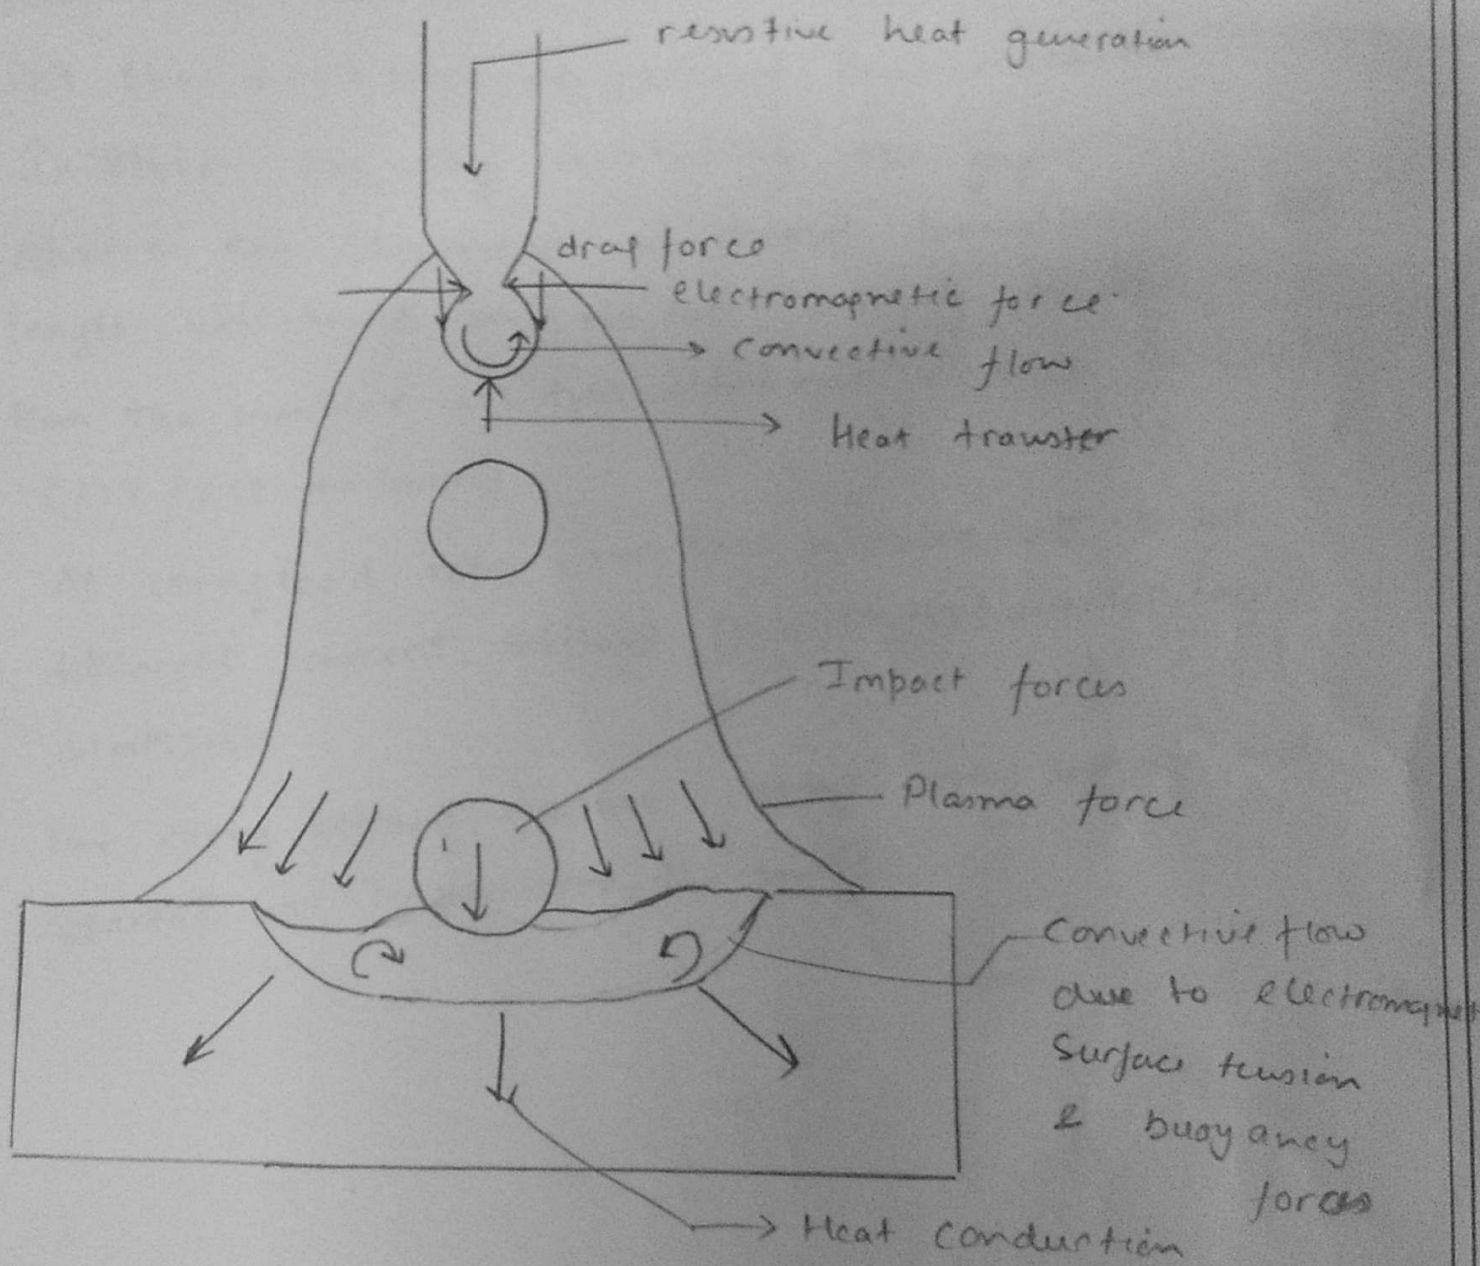 resistive heat generation
drag force
electromagnetic force
convective flow
Heat transfer
Impact forces
Plasma force
Convective flow
due to electromagnet
Surface tension
& buoyancy
forces
Heat conduction